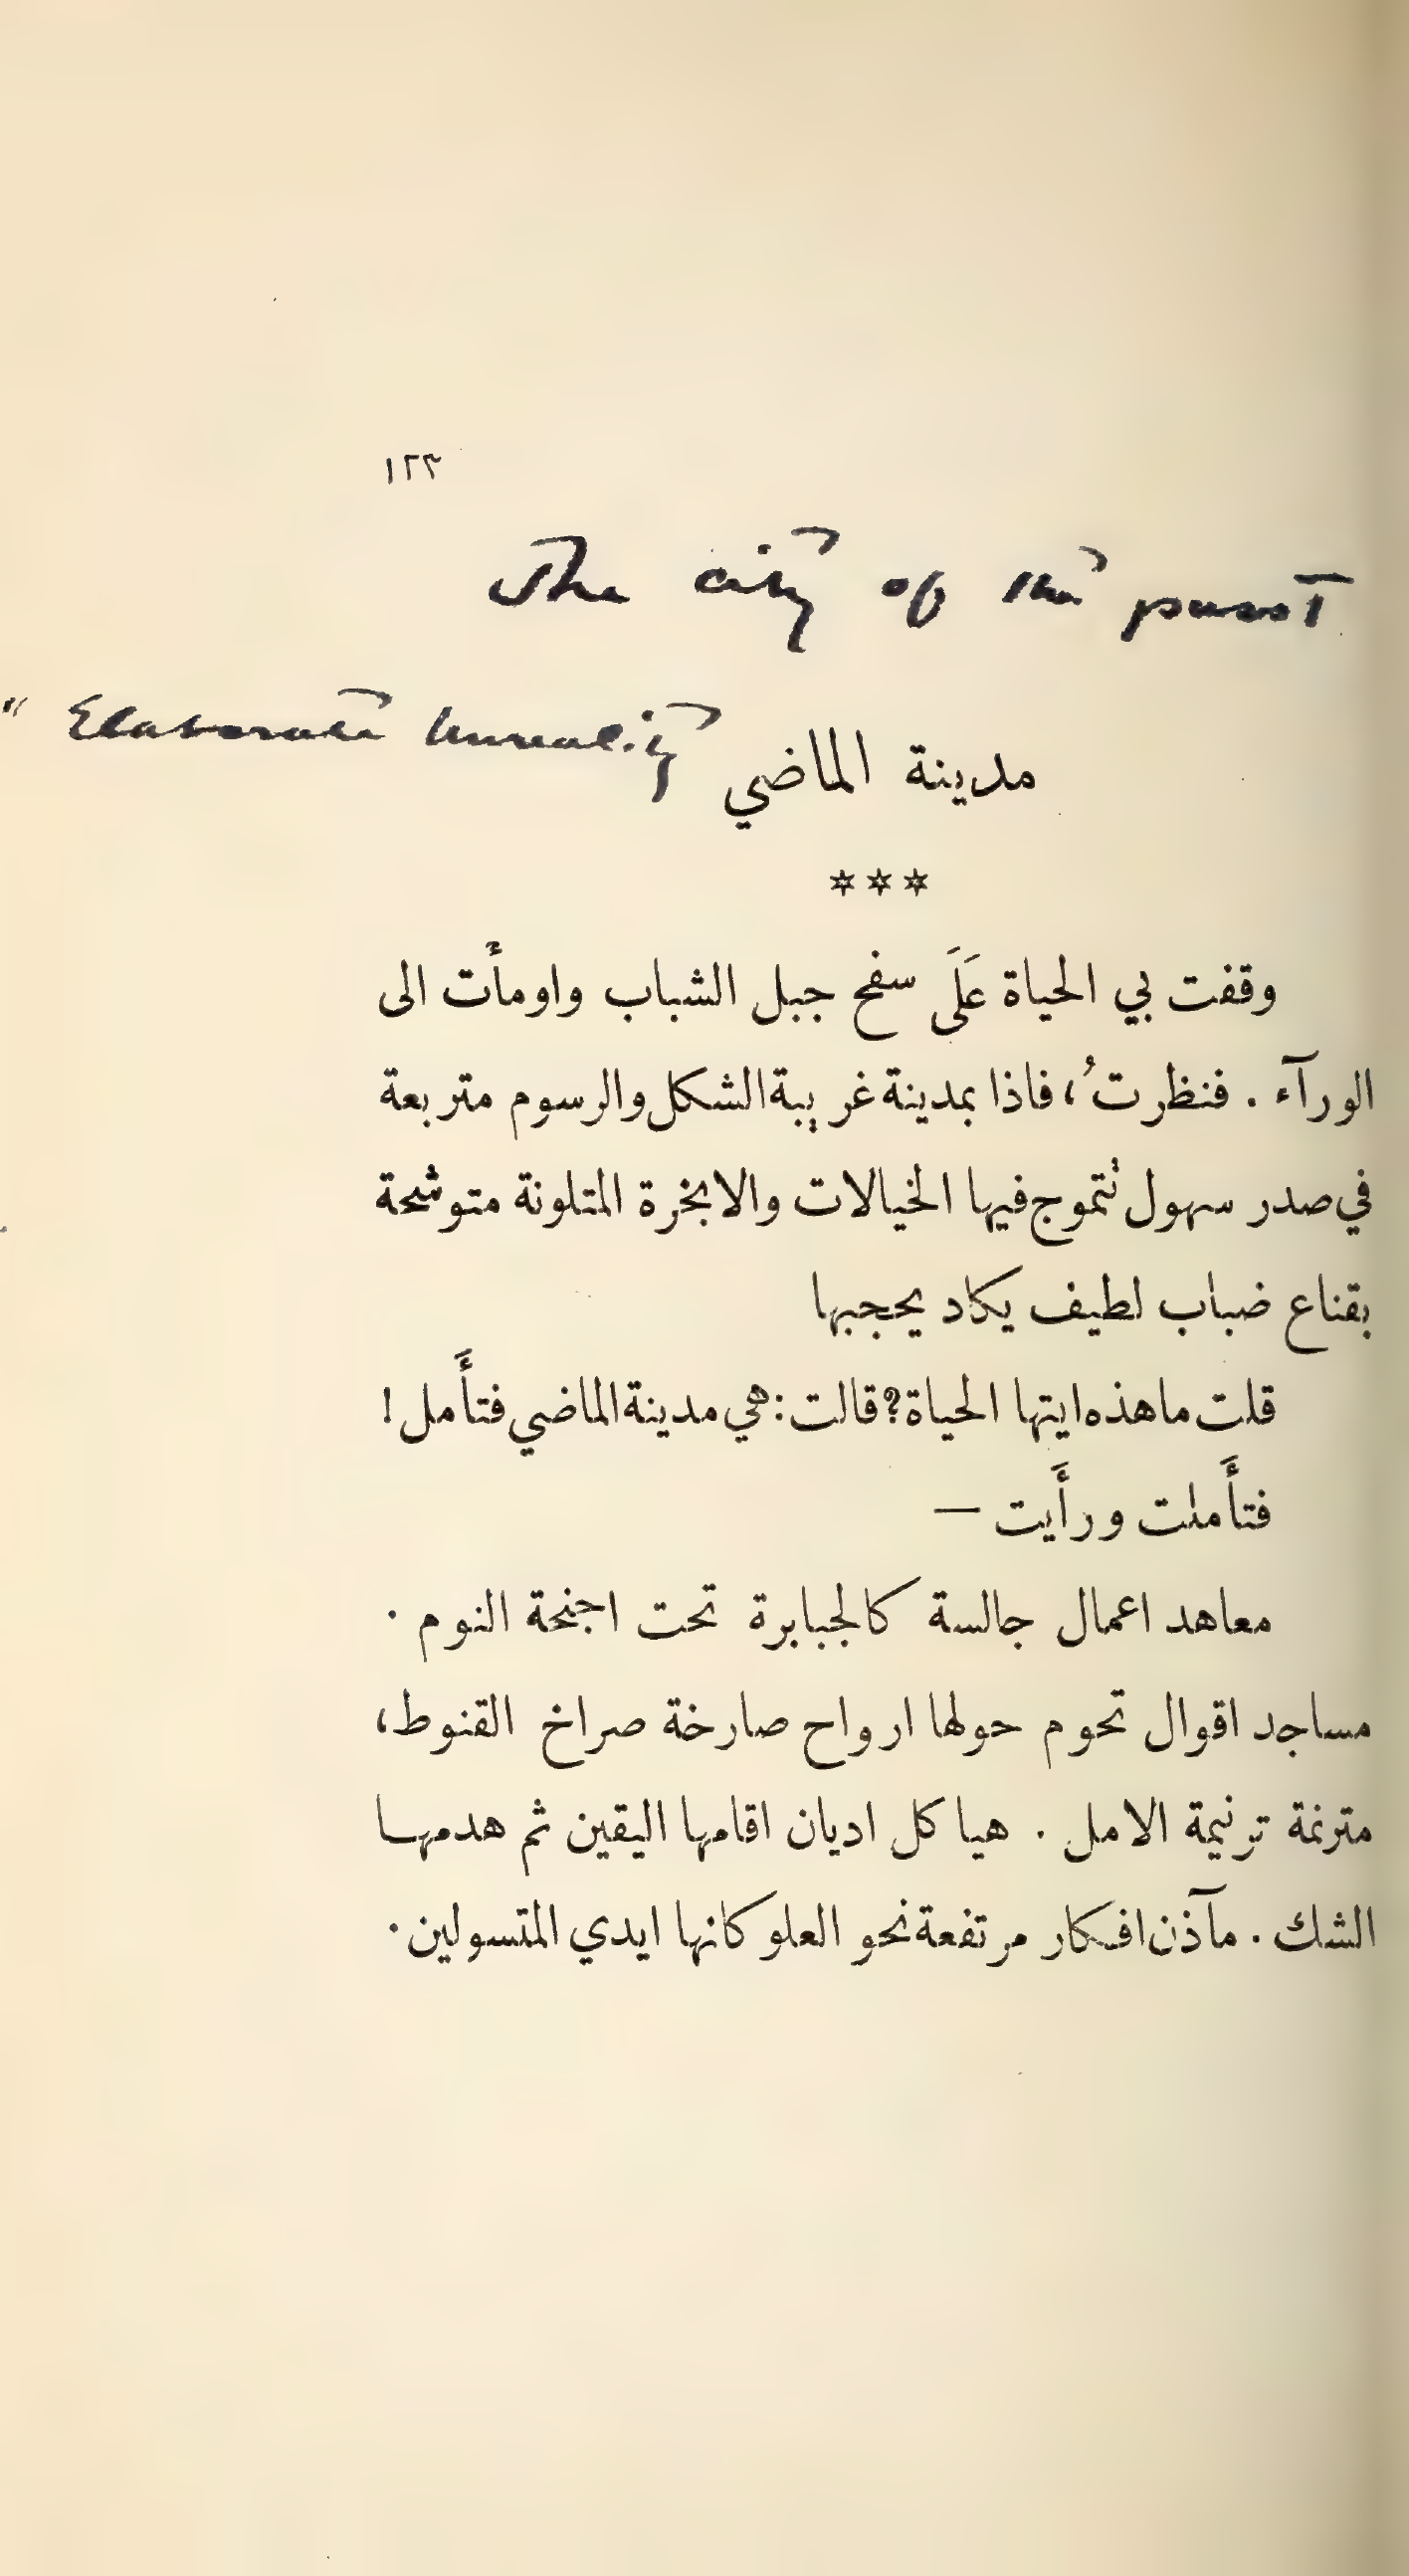 ١٢٣
The city of the past
" Elaborate unreality
مدينة الماضي
***
وقفت بي الحياة عَلَى سفح جبل الشباب واومأَت الى
الورآء . فنظرتُ، فاذا بمدينة غريبة الشكل والرسوم متربعة
في صدر سهول تتموج فيها الخيالات والابخرة المتلونة متوشحة
بقناع ضباب لطيف يكاد يحجبها
قلت ما هذه ايتها الحياة؟ قالت: هي مدينة الماضي فتأَمل!
فتأَملت ورأَيت —
معاهد اعمال جالسة كالجبابرة تحت اجنحة النوم .
مساجد اقوال تحوم حولها ارواح صارخة صراخ القنوط،
مترنمة ترنيمة الامل . هياكل اديان اقامها اليقين ثم هدمها
الشك . مآذن افكار مرتفعة نحو العلو كانها ايدي المتسولين .